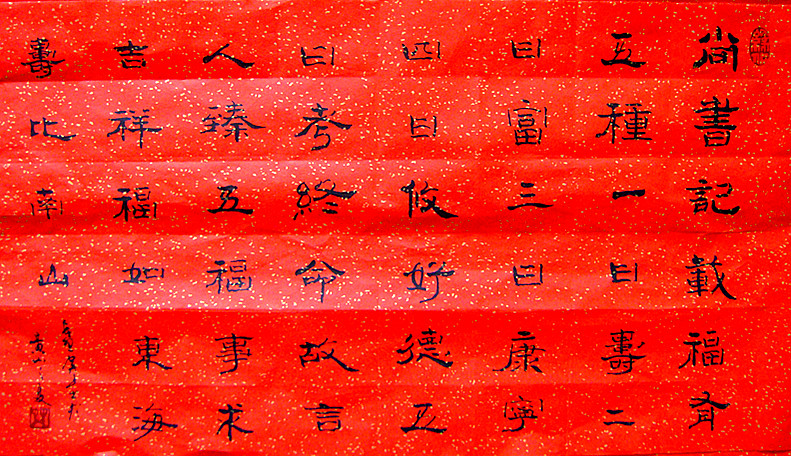 尚書記載福有
五種一曰壽二
曰富三曰康寧
四曰攸好德五
曰考終命故言
人臻五福事求
吉祥福如東海
壽比南山